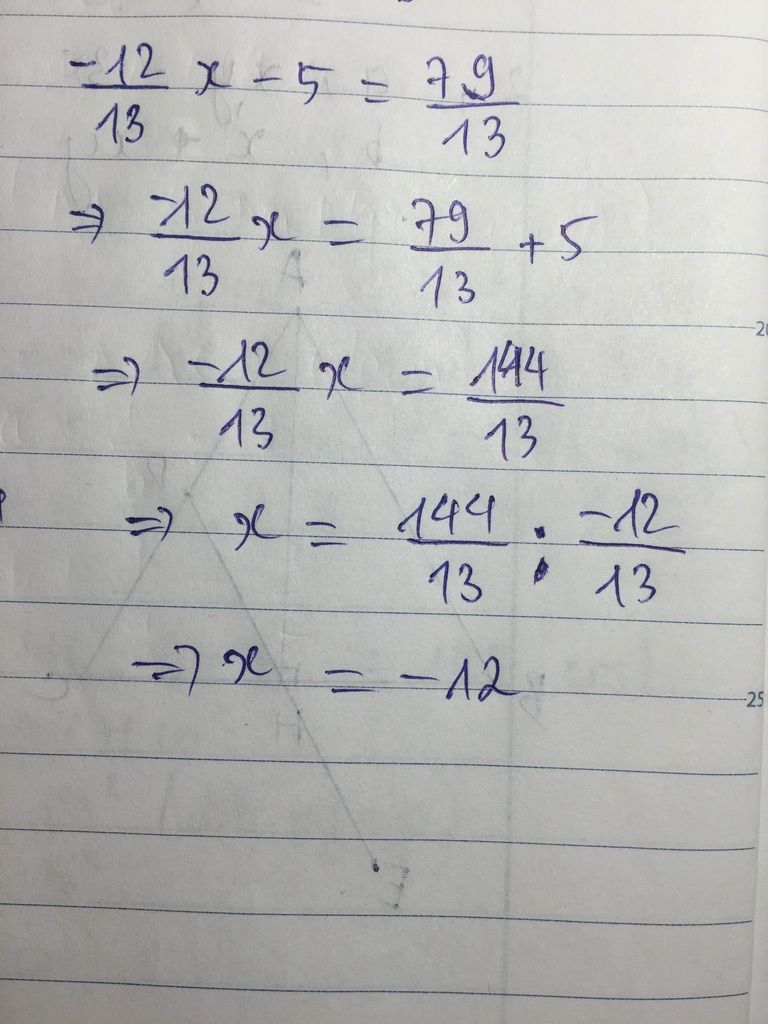 -12/13 x - 5 = 79/13
⇒ -12/13 x = 79/13 + 5
⇒ -12/13 x = 144/13
⇒ x = 144/13 : -12/13
⇒ x = -12
20
25